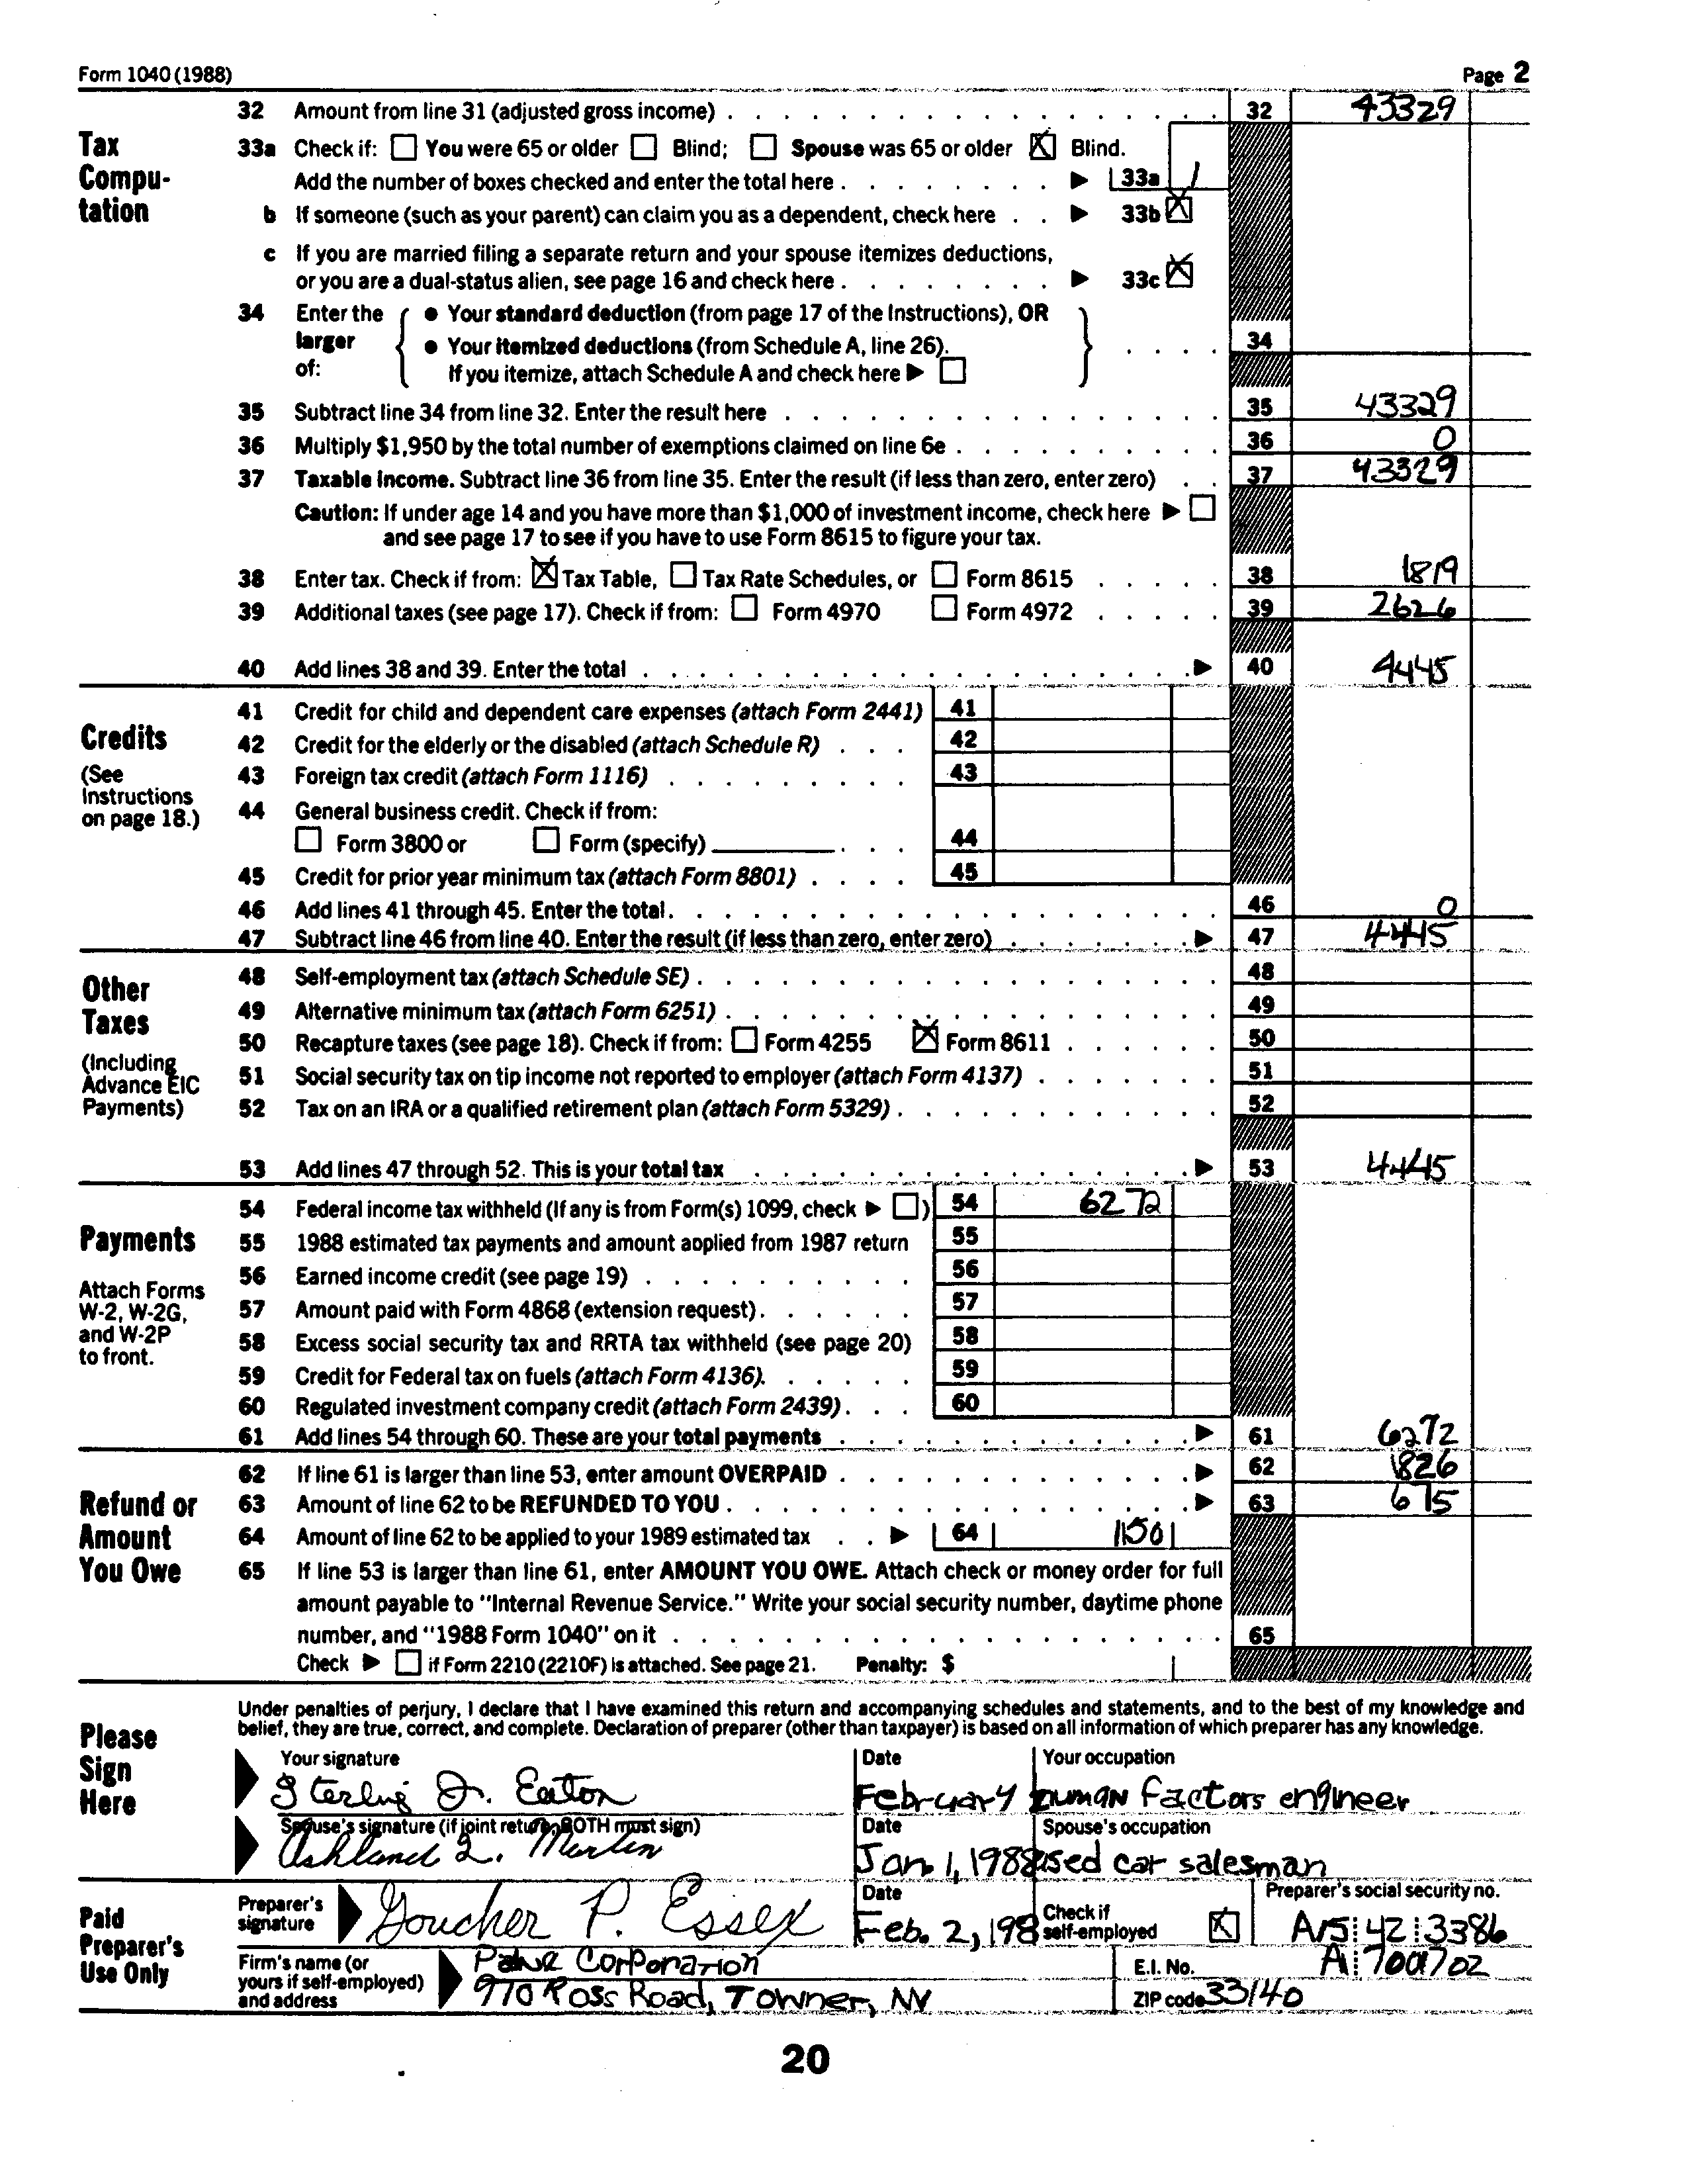 Form 1040 (1988) Page 2
32 Amount from line 31 (adjusted gross income) 32 43329
Tax Compu-tation
33a Check if: You were 65 or older Blind; Spouse was 65 or older X Blind.
Add the number of boxes checked and enter the total here 33a 1
b If someone (such as your parent) can claim you as a dependent, check here 33b X
c If you are married filing a separate return and your spouse itemizes deductions,
or you are a dual-status alien, see page 16 and check here 33c X
34 Enter the larger of:
• Your standard deduction (from page 17 of the Instructions), OR
• Your itemized deductions (from Schedule A, line 26).
If you itemize, attach Schedule A and check here
34
35 Subtract line 34 from line 32. Enter the result here 35 43329
36 Multiply $1,950 by the total number of exemptions claimed on line 6e 36 0
37 Taxable income. Subtract line 36 from line 35. Enter the result (if less than zero, enter zero) 37 43329
Caution: If under age 14 and you have more than $1,000 of investment income, check here
and see page 17 to see if you have to use Form 8615 to figure your tax.
38 Enter tax. Check if from: X Tax Table, Tax Rate Schedules, or Form 8615 38 1819
39 Additional taxes (see page 17). Check if from: Form 4970 Form 4972 39 2626
40 Add lines 38 and 39. Enter the total 40 4445
Credits
(See Instructions on page 18.)
41 Credit for child and dependent care expenses (attach Form 2441) 41
42 Credit for the elderly or the disabled (attach Schedule R) 42
43 Foreign tax credit (attach Form 1116) 43
44 General business credit. Check if from:
Form 3800 or Form (specify) 44
45 Credit for prior year minimum tax (attach Form 8801) 45
46 Add lines 41 through 45. Enter the total. 46 0
47 Subtract line 46 from line 40. Enter the result (if less than zero, enter zero) 47 4445
Other Taxes
(Including Advance EIC Payments)
48 Self-employment tax (attach Schedule SE) 48
49 Alternative minimum tax (attach Form 6251) 49
50 Recapture taxes (see page 18). Check if from: Form 4255 X Form 8611 50
51 Social security tax on tip income not reported to employer (attach Form 4137) 51
52 Tax on an IRA or a qualified retirement plan (attach Form 5329) 52
53 Add lines 47 through 52. This is your total tax 53 4445
Payments
Attach Forms W-2, W-2G, and W-2P to front.
54 Federal income tax withheld (If any is from Form(s) 1099, check ) 54 6272
55 1988 estimated tax payments and amount applied from 1987 return 55
56 Earned income credit (see page 19) 56
57 Amount paid with Form 4868 (extension request) 57
58 Excess social security tax and RRTA tax withheld (see page 20) 58
59 Credit for Federal tax on fuels (attach Form 4136). 59
60 Regulated investment company credit (attach Form 2439) 60
61 Add lines 54 through 60. These are your total payments 61 6272
Refund or Amount You Owe
62 If line 61 is larger than line 53, enter amount OVERPAID 62 1826
63 Amount of line 62 to be REFUNDED TO YOU 63 675
64 Amount of line 62 to be applied to your 1989 estimated tax 64 1150
65 If line 53 is larger than line 61, enter AMOUNT YOU OWE. Attach check or money order for full
amount payable to "Internal Revenue Service." Write your social security number, daytime phone
number, and "1988 Form 1040" on it 65
Check if Form 2210 (2210F) is attached. See page 21. Penalty: $
Please Sign Here
Under penalties of perjury, I declare that I have examined this return and accompanying schedules and statements, and to the best of my knowledge and
belief, they are true, correct, and complete. Declaration of preparer (other than taxpayer) is based on all information of which preparer has any knowledge.
Your signature Date Your occupation
Sterling Jr. Eaton February human factors engineer
Spouse's signature (if joint return, BOTH must sign) Date Spouse's occupation
Ashland L. Martin Jan 1, 1988 used car salesman
Paid Preparer's Use Only
Preparer's signature Goucher P. Essex
Date Feb. 2, 198
Check if self-employed X
Preparer's social security no. A15 42 3386
Firm's name (or yours if self-employed) and address
Corporation
970 Ross Road, Towner, NV
E.I. No. A 7001702
ZIP code 33140
20